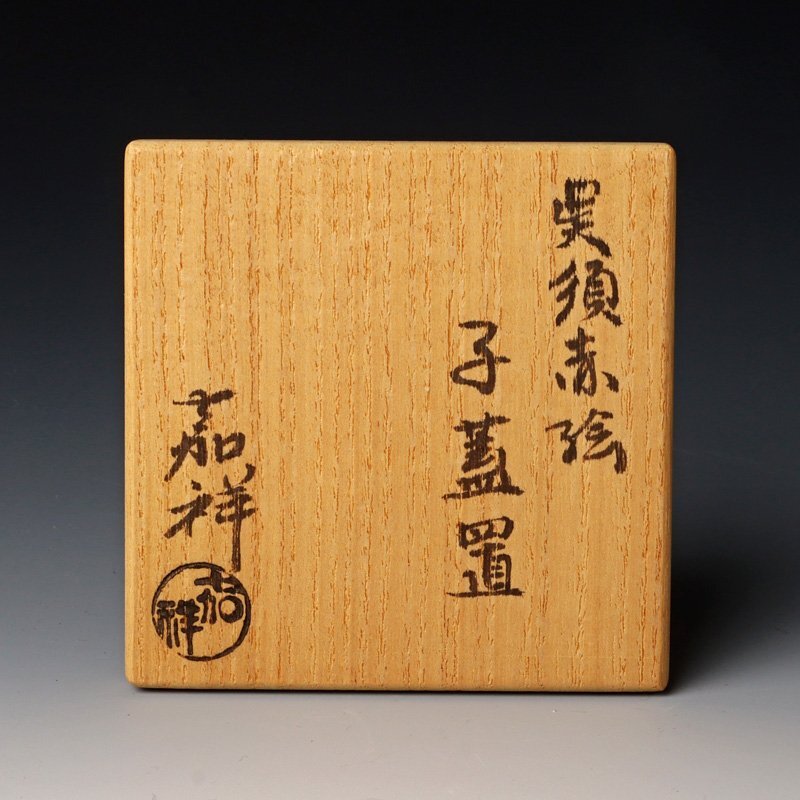 呉須赤絵
子蓋置
嘉祥
嘉祥